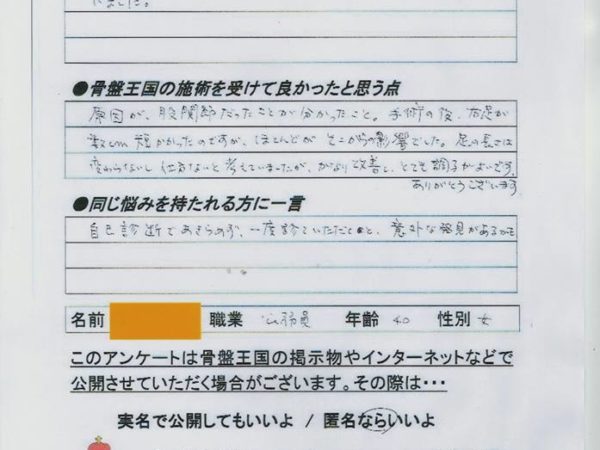 いました。
●骨盤王国の施術を受けて良かったと思う点
原因が、股関節だったことが分かったこと。手術の後、右足が
数cm短かかったのですが、ほとんどがそこからの影響でした。足の長さは
変わらないし仕方ないと考えていましたが、かなり改善し、とても調子がよいです。
ありがとうございます
●同じ悩みを持たれる方に一言
自己診断であきらめず、一度診ていただくと、意外な発見があるかも
名前 職業 公務員 年齢 40 性別 女
このアンケートは骨盤王国の掲示物やインターネットなどで
公開させていただく場合がございます。その際は・・・
実名で公開してもいいよ / 匿名ならいいよ